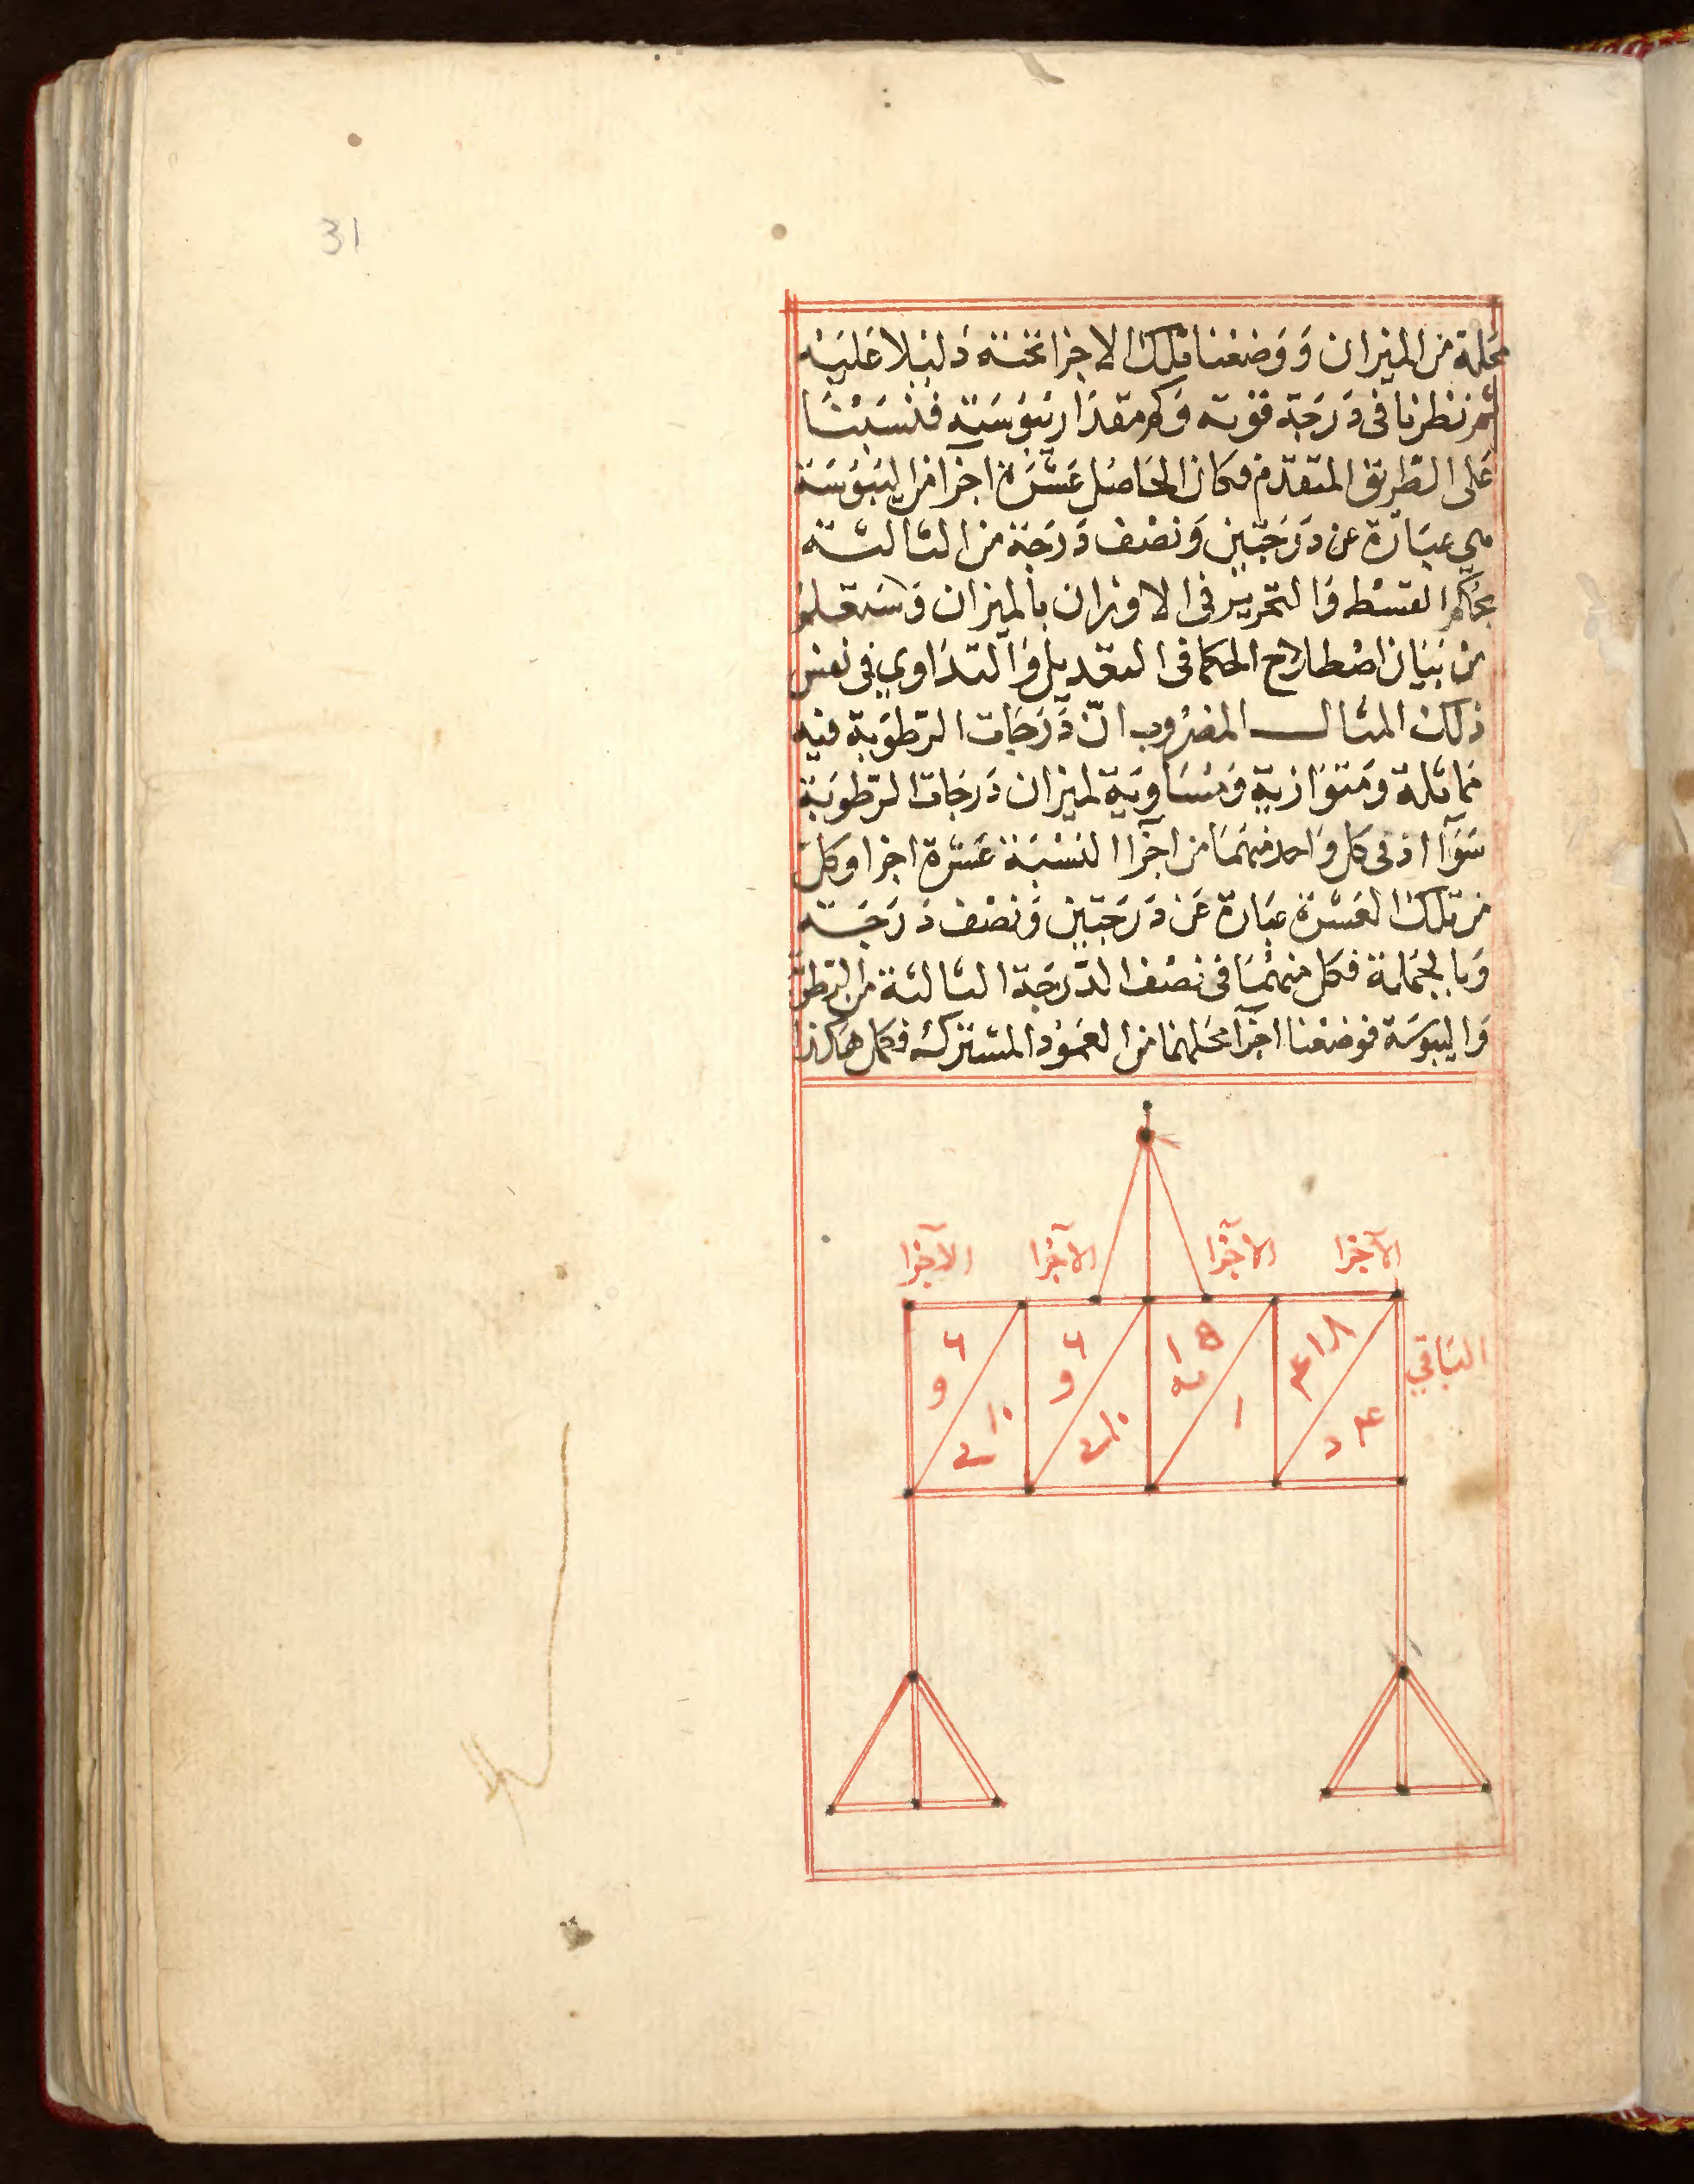 31
محله من الميزان ووضعنا تلك الاجزا تحته دليلا عليه
ثم نظرنا في درجة قوته وكم مقدار يبوسته فنسبنا
على الطريق المتقدم فكان الحاصل عشرة اجزا من اليبوسة
هي عبارة عن درجتين ونصف درجة من الثالثة
بحكم القسط والتحرير في الاوزان بالميزان وستعلم
من بيان اصطلاح الحكما في التعديل والتداوي في نفس
ذلك المثال المضروب ان درجات الرطوبة فيه
مماثلة ومتوازية ومساوية لميزان درجات الرطوبة
سوآ اذ في كل واحد منهما من اجزا النسبة عشرة اجزا وكل
من تلك العشرة عبارة عن درجتين ونصف درجة
وبالجملة فكل منهما في نصف الدرجة الثالثة من الرطو
واليبوسة فوضعنا اجزآ محلهما من العمود المشترك فكل هكذا
الآجزا الآجزا الآجزا الآجزا
الباقي
٤ د
١
١٠ ي
١٠ ي
٦ و
٦ و